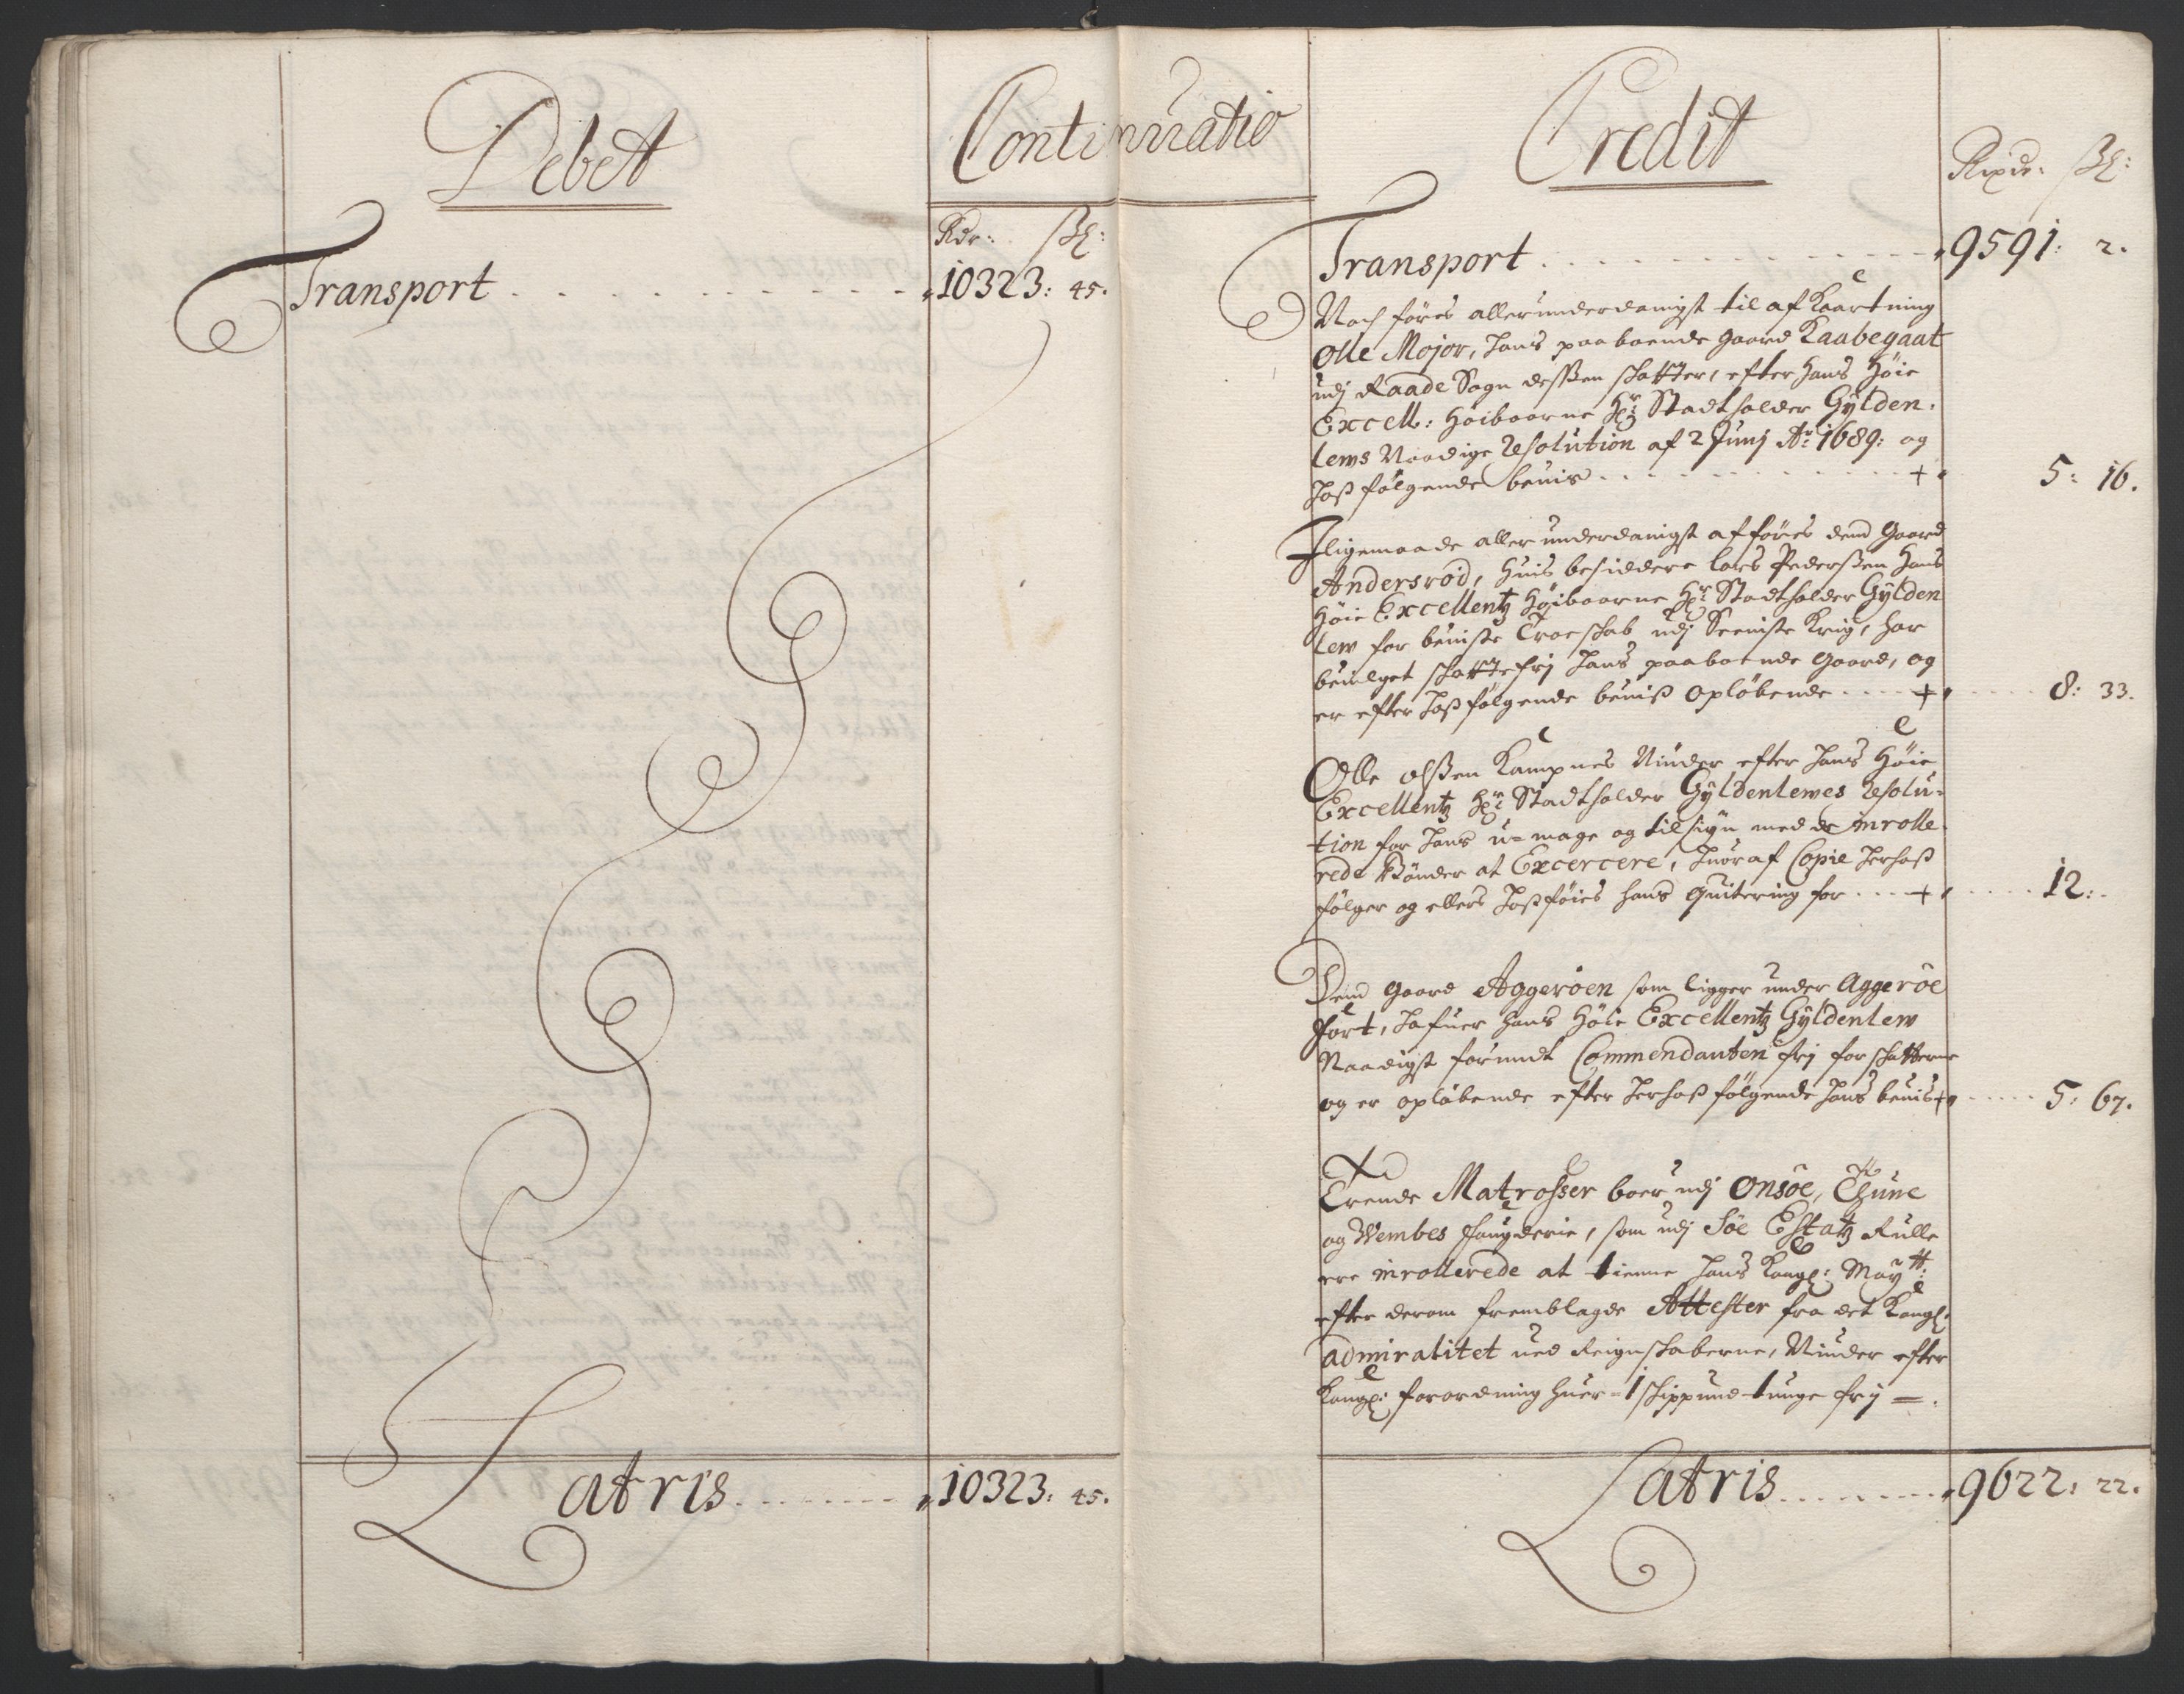 Debet
Continuatio
Rdr: ẞ:
Transport . . . . . . . . . . . . 10323: 45.
Latris . . . . . . . . 10323: 45.
Credit
Rixdr: ẞ:
Transport . . . . . . . . . . . . 9591: 2.
Noch føres allerunderdanigst til afkaartning
Olle Mojor, hans paaboende gaard Kaabegaat
udj Raade Sogn desßen skatter, efter hans Høie
Excell: Høibaarne Hr: Stadtholder Gÿlden-
lews Naadige Resolution af 2 Junj Ao: 1689: og
hosfølgende beuis . . . . . . . . . + 5: 16.
Iligemaade allerunderdanigst afføres dend Gaard
Andersrød, huis besiddere Lars Pederßen Hans
Høie Excellentz Høibaarne Hr: Stadtholder Gÿlden
lew for beuiste Troeskab udj Seeniste Krig, har
beuilget skattefrj hans paaboende Gaard, og
er efter hosfølgende beuiß opløbende . . . . + 8: 33.
Olle olßen Kampnes Niuder efter hans Høie
Excellentz Hr: Stadtholder Gÿldenlewes Resolu-
tion for hans u-mage og tilsiyn med de inrolle-
rede Bønder at Excercere, huoraf Copie herhoß
følger og ellers hosføies hans quitering for . . . + 12: -
Dend gaard Aggerøen som ligger under Aggerøe
Fort, hafuer hans Høie Excellentz Gÿldenlew
Naadigst forundt Commendanten frj for skatterne
og er opløbende efter herhoß følgende hans beuis + 5: 67.
Trende Matroßer boer udj Onsøe, Thune
og Wembes Fougderie, som udj Søe Estatz Rulle
ere inrollerede at tienne hans Kongl: Maÿtt:
efter derom fremblagde Attester fra det Kongl:
admiralitet ued Reignskaberne, Niuder efter
Kongl: forordning huer - 1 skippund tunge frj =.
Latris . . . . . . . . 9622: 22.